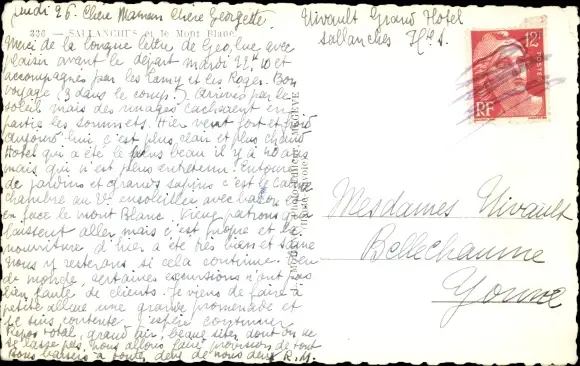 jeudi 26. Chère Maman Chère Georgette.
Vivault Grand Hotel
Sallanches Hte S.
330 — SALLANCHES et le Mont Blanc
Merci de la longue lettre de Geo, lue avec
plaisir avant le départ mardi 22h10 et
accompagnés par les Lamy et les Roger. Bon
voyage, 3 dans le comp. Arrivés par le
soleil mais des nuages cachaient en
partie les sommets. Hier vent fort et froid
aujourd'hui c'est plus clair et plus chaud
Hotel qui a été le plus beau il y a 40 ans
mais qui n'est plus entretenu. Entouré
de jardins et grands sapins c'est le calme
chambre au 2e ensoleillée avec balcon
en face le mont Blanc. Vieux patrons qui
laissent aller mais c'est propre et la
nourriture d'hier a été très bien et saine
nous y resterons si cela continue. Peu
de monde, certaines excursions n'ont pas
bien faute de clients. Je viens de faire à
petite allure une grande promenade et
je suis contente. J'espère continuer
Repos total, grand air, beaux sites dont on ne
se lasse pas, nous allons faire provision de tout
Bons baisers à toutes deux de nous deux R. M.
12F
POSTES
RF
MEGÈVE
Mesdames Vivault
Bellechaume
Yonne